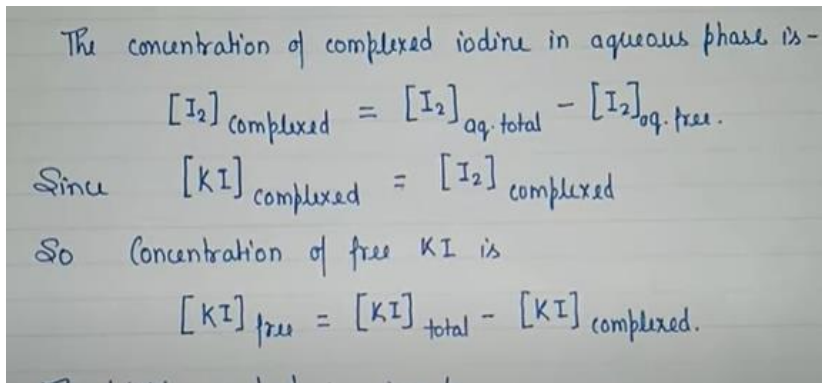 The concentration of complexed iodine in aqueous phase is -
[I₂] complexed = [I₂] aq. total - [I₂] aq. free.
Since [KI] complexed = [I₂] complexed
So Concentration of free KI is
[KI] free = [KI] total - [KI] complexed.